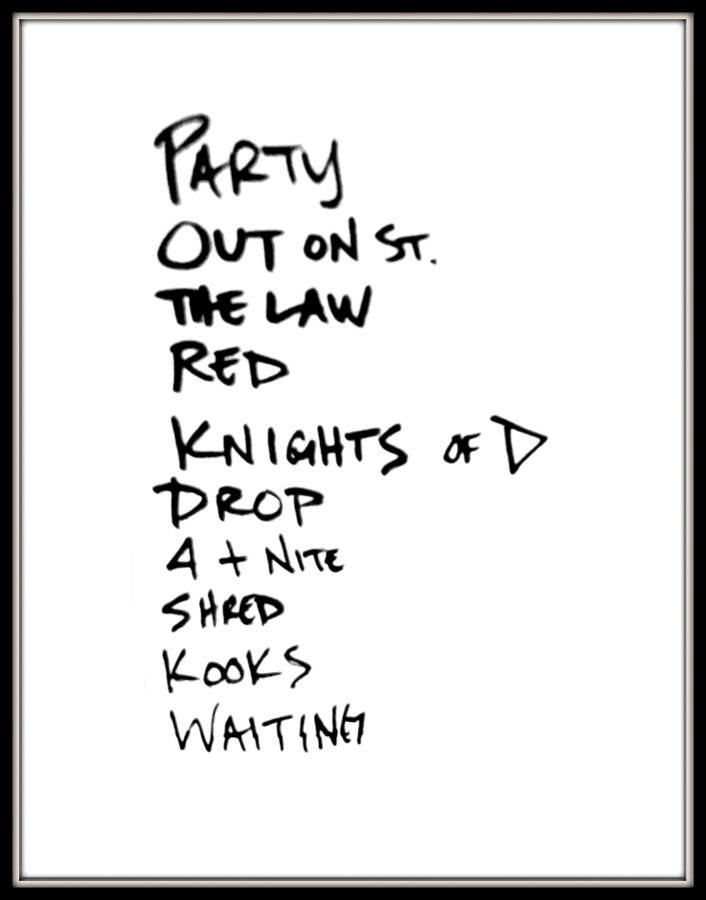 PARTY
OUT ON ST.
THE LAW
RED
KNIGHTS OF D
DROP
4 + NITE
SHRED
KOOKS
WAITING